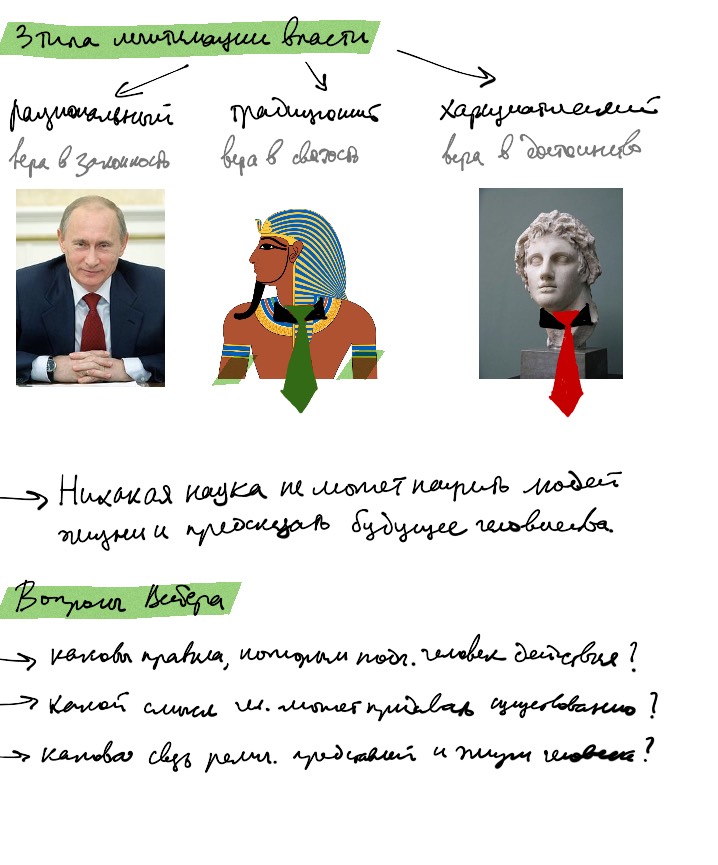 3 типа легитимации власти
рациональный традиционный харизматический
вера в законность вера в святость вера в достоинство
→ Никакая наука не может научить людей
жизни и предсказать будущее человечества
Вопросы Вебера
→ каковы правила, которым подч. человек действуя?
→ какой смысл чел. может придавать существованию?
→ какова связь религ. представлений и жизни человека?